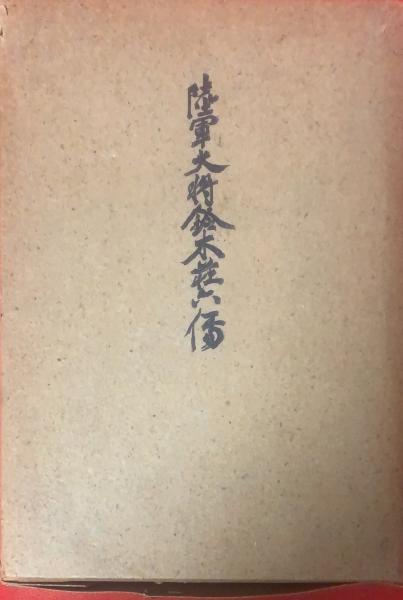 陸軍大将鈴木荘六傳